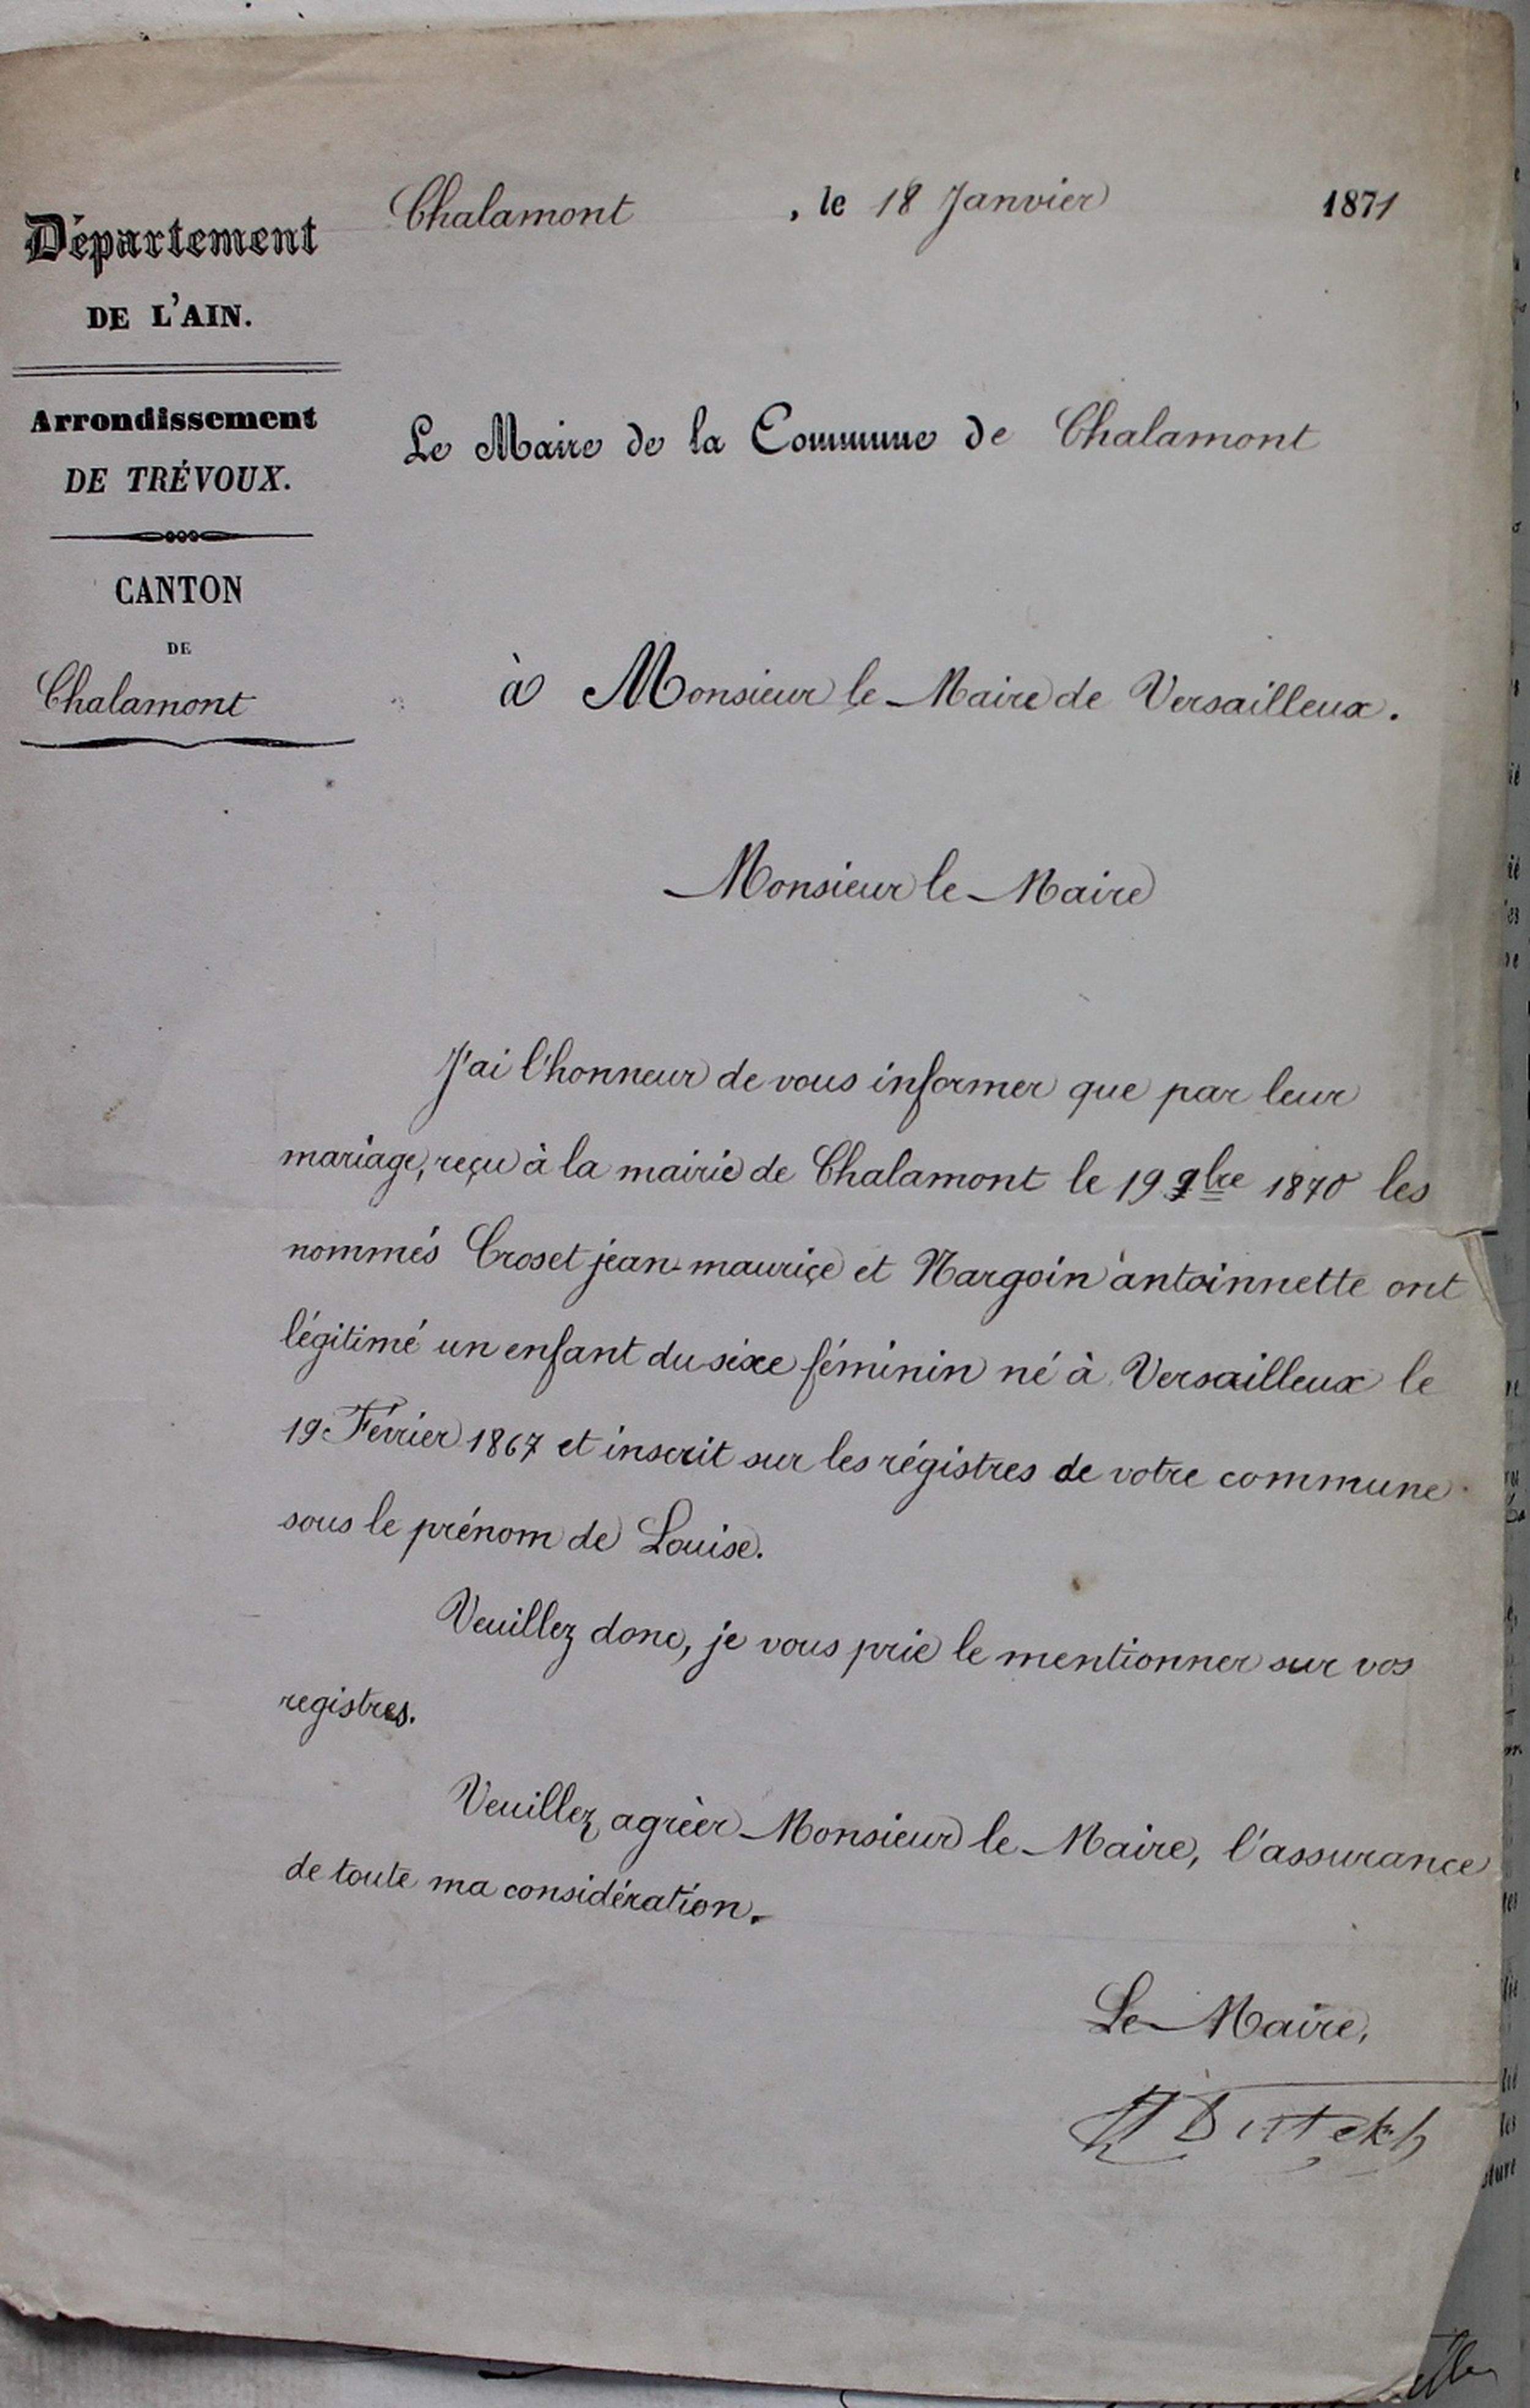 Département
DE L'AIN.
Arrondissement
DE TRÉVOUX.
CANTON
DE
Chalamont
Chalamont , le 18 Janvier 1871
Le Maire de la Commune de Chalamont
à Monsieur le Maire de Versailleux.
Monsieur le Maire
J'ai l'honneur de vous informer que par leur
mariage, reçu à la mairie de Chalamont le 19 9bre 1870 les
nommés Croset jean-maurice et Margoin antoinnette ont
légitimé un enfant du sexe féminin né à Versailleux le
19 Février 1867 et inscrit sur les régistres de votre commune
sous le prénom de Louise.
Veuillez donc, je vous prie le mentionner sur vos
registres.
Veuillez agrèer Monsieur le Maire, l'assurance
de toute ma considération.
Le Maire,